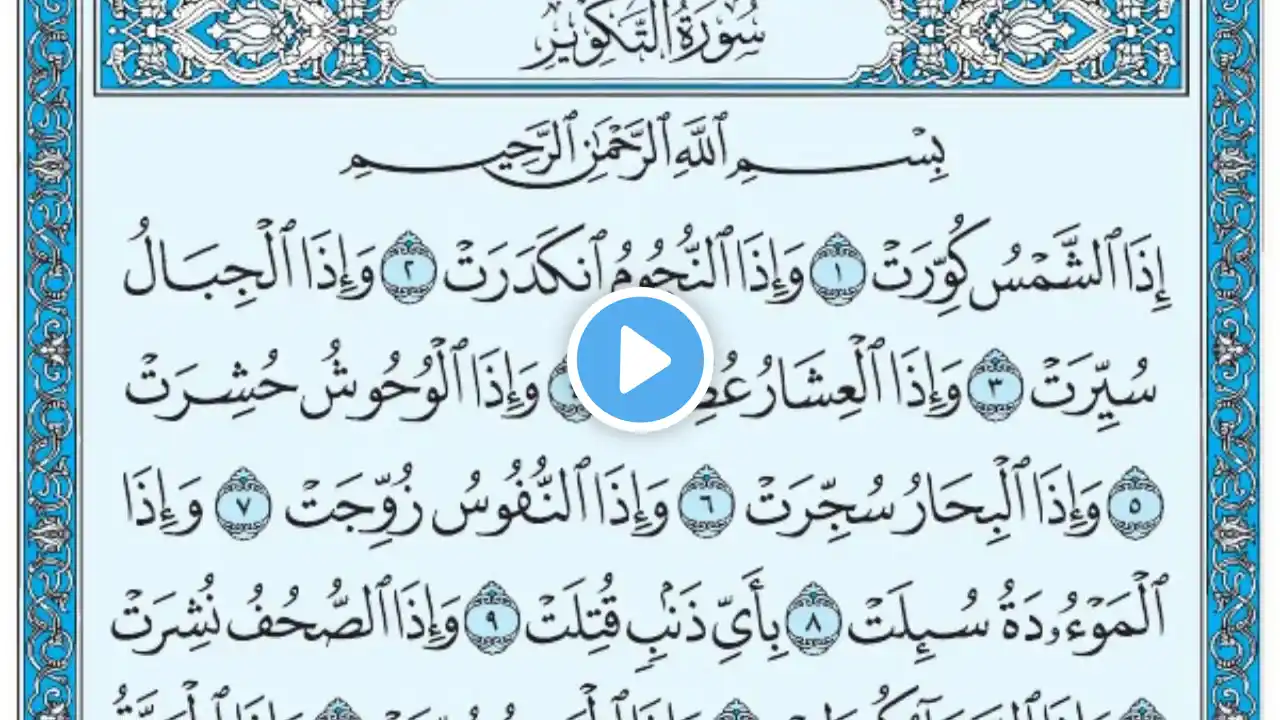 سُورَةُ التَّكْوِيرِ
بِسْمِ ٱللَّهِ ٱلرَّحْمَٰنِ ٱلرَّحِيمِ
إِذَا ٱلشَّمْسُ كُوِّرَتْ ١ وَإِذَا ٱلنُّجُومُ ٱنكَدَرَتْ ٢ وَإِذَا ٱلْجِبَالُ
سُيِّرَتْ ٣ وَإِذَا ٱلْعِشَارُ وَإِذَا ٱلْوُحُوشُ حُشِرَتْ
٥ وَإِذَا ٱلْبِحَارُ سُجِّرَتْ ٦ وَإِذَا ٱلنُّفُوسُ زُوِّجَتْ ٧ وَإِذَا
ٱلْمَوْءُۥدَةُ سُئِلَتْ ٨ بِأَيِّ ذَنۢبٍ قُتِلَتْ ٩ وَإِذَا ٱلصُّحُفُ نُشِرَتْ